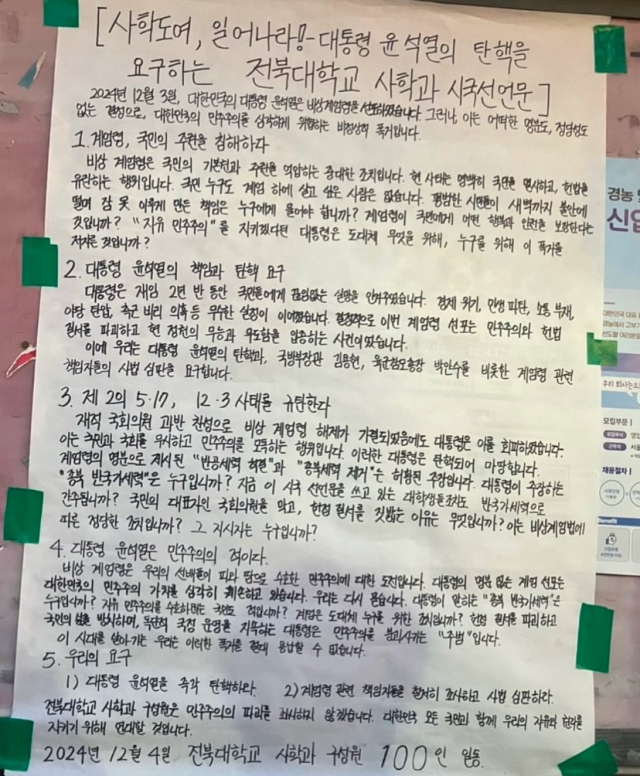 [사학도여, 일어나라! - 대통령 윤석열의 탄핵을
요구하는 전북대학교 사학과 시국선언문]
2024년 12월 3일, 대한민국의 대통령 윤석열은 비상계엄령을 선포하였습니다. 그러나, 이는 어떠한 명분도, 정당성도
없는 결정으로, 대한민국의 민주주의를 심각하게 위협하는 비정상적 폭거입니다.
1. 계엄령, 국민의 주권을 침해하다
비상 계엄령은 국민의 기본권과 주권을 억압하는 중대한 조치입니다. 현 사태는 명백히 국민을 멸시하고, 헌법을
유린하는 행위입니다. 국민 누구도 계엄 하에 살고 싶은 사람은 없습니다. 평범한 시민들이 새벽까지 불안에
떨며 잠 못 이루게 만든 책임은 누구에게 물어야 합니까? 계엄령이 국민에게 어떤 행복과 안전을 보장한다는
것입니까? "자유 민주주의"를 지키겠다던 대통령은 도대체 무엇을 위해, 누구를 위해 이 폭거를
저지른 것입니까?
2. 대통령 윤석열의 책임과 탄핵 요구
대통령은 재임 2년 반 동안 국민들에게 끊임없는 실망을 안겨주었습니다. 경제 위기, 민생 파탄, 소통 부재,
야당 탄압, 측근 비리 의혹 등 무수한 실정이 이어졌습니다. 결정적으로 이번 계엄령 선포는 민주주의와 헌법
질서를 파괴하고 현 정권의 무능과 무도함을 입증하는 사건이었습니다.
이에 우리는 대통령 윤석열의 탄핵과, 국방부장관 김용현, 육군참모총장 박안수를 비롯한 계엄령 관련
책임자들의 사법 심판을 요구합니다.
3. 제 2의 5·17, 12·3 사태를 규탄한다
재적 국회의원 과반 찬성으로 비상 계엄령 해제가 가결되었음에도 대통령은 이를 회피하였습니다.
이는 국민과 국회를 무시하고 민주주의를 모독하는 행위입니다. 이러한 대통령은 탄핵되어 마땅합니다.
계엄령의 명분으로 제시된 "반국가세력 척결"과 "종북세력 제거"는 허황된 주장입니다. 대통령이 주장하는
"종북 반국가세력"은 누구입니까? 지금 이 시국 선언문을 쓰고 있는 대학생들조차도 반국가세력으로
간주됩니까? 국민의 대표자인 국회의원을 막고, 헌정 질서를 짓밟는 이유는 무엇입니까? 이는 비상계엄법에
따른 정당한 조치입니까? 그 지시자는 누구입니까?
4. 대통령 윤석열은 민주주의의 적이다.
비상 계엄령은 우리의 선배들이 피와 땀으로 수호한 민주주의에 대한 도전입니다. 대통령의 명분 없는 계엄 선포는
대한민국의 민주주의 가치를 심각히 훼손하고 있습니다. 우리는 다시 묻습니다. 대통령이 말하는 "종북 반국가세력"은
누구입니까? 자유 민주주의를 수호하려는 국민도 적입니까? 계엄은 도대체 누구를 위한 조치입니까? 헌정 질서를 파괴하고
국민의 삶을 방치하며, 독단적 국정 운영을 지속하는 대통령은 민주주의를 붕괴시키는 "주범"입니다.
이 시대를 살아가는 우리는 이러한 폭거를 절대 용납할 수 없습니다.
5. 우리의 요구
1) 대통령 윤석열을 즉각 탄핵하라. 2) 계엄령 관련 책임자들을 철저히 조사하고 사법 심판하라.
전북대학교 사학과 구성원은 민주주의의 파괴를 좌시하지 않겠습니다. 대한민국 모든 국민과 함께 우리의 자유와 권리를
지키기 위해 연대할 것입니다.
2024년 12월 4일 전북대학교 사학과 구성원 100인 일동.
경농
신입
모집부문
채용절차
Benefit